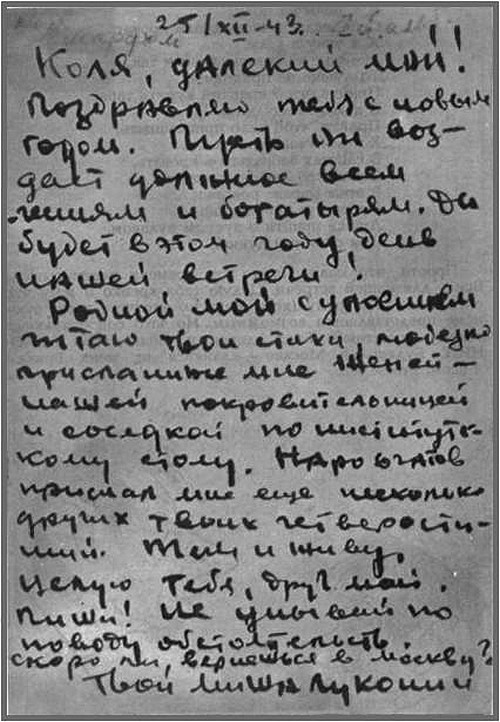 25/XII-43.
Коля, далекий мой!
Поздравляю тебя с новым
годом. Пусть он воз-
даст должное всем
гениям и богатырям. Да
будет в этом году день
нашей встречи!
Родной мой с упоением
читаю твои стихи, любезно
присланные мне Женей –
нашей покровительницей
и соседкой по институт-
кому столу. Наровчатов
прислал мне еще несколько
других твоих четверости-
ший. Тем и живу.
Целую тебя, друг мой.
Пиши! Не унывай по
поводу обстоятельств.
Скоро ли, вернешься в москву?
Твой Миша Луконин